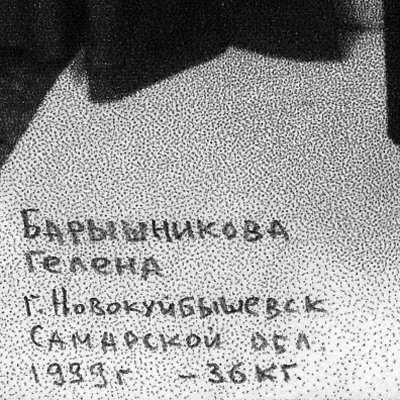 БАРЫШНИКОВА
ГЕЛЕНА
Г. НОВОКУЙБЫШЕВСК
САМАРСКОЙ ОБЛ.
1999 г – 36 КГ.